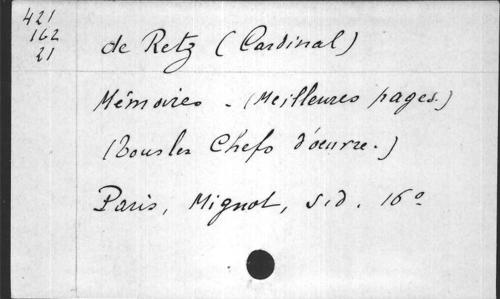 421
162
21
de Retz (Cardinal)
Mémoires - (Meilleures pages.)
(Tous les Chefs d'oeuvre.)
Paris, Mignot, s.d. 16º